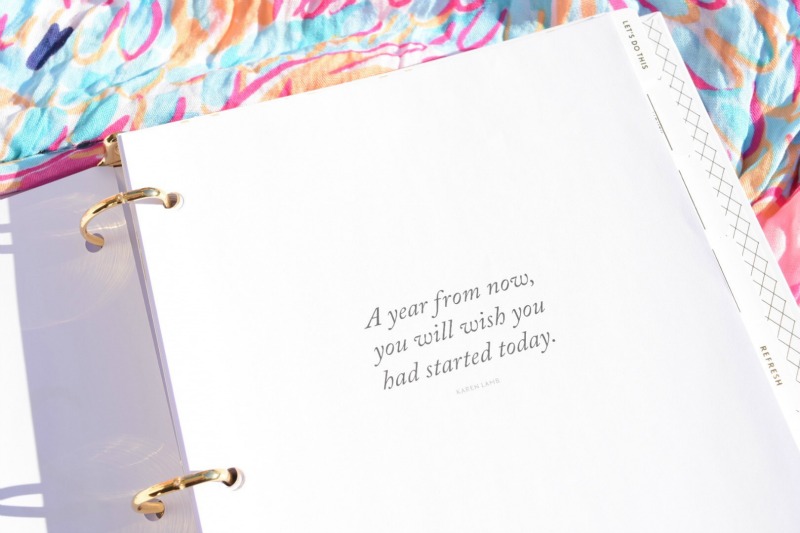 LET'S DO THIS
A year from now,
you will wish you
had started today.
KAREN LAMB
REFRESH